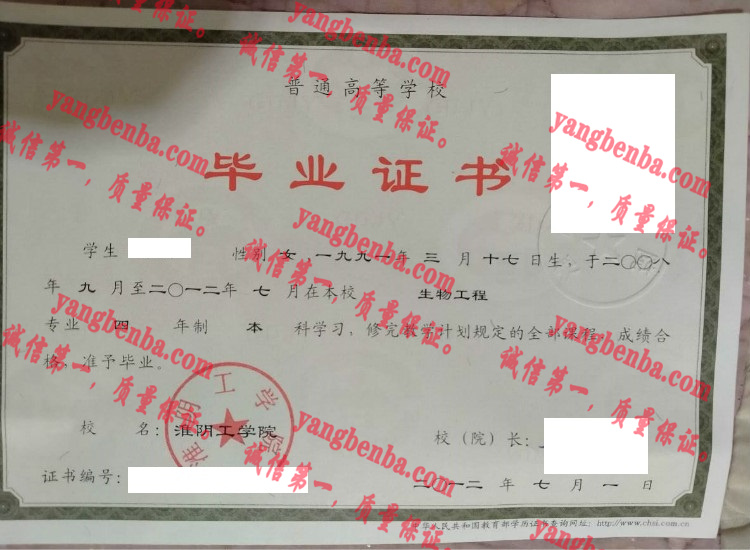 普通高等学校
毕业证书
学生 性别 女，一九九一年 三 月 十七 日生，于二〇〇八
年 九 月至二〇一二年 七 月在本校 生物工程
专业 四 年制 本 科学习，修完教学计划规定的全部课程，成绩合
格，准予毕业。
校 名：淮阴工学院
校（院）长：
证书编号：
二〇一二 年 七 月 一 日
中华人民共和国教育部学历证书查询网址：http://www.chsi.com.cn
淮阴工学院
yangbenba.com
诚信第一，质量保证。
yangbenba.com
诚信第一，质量保证。
yangbenba.com
诚信第一，质量保证。
yangbenba.com
诚信第一，质量保证。
yangbenba.com
诚信第一，质量保证。
yangbenba.com
诚信第一，质量保证。
yangbenba.com
诚信第一，质量保证。
yangbenba.com
诚信第一，质量保证。